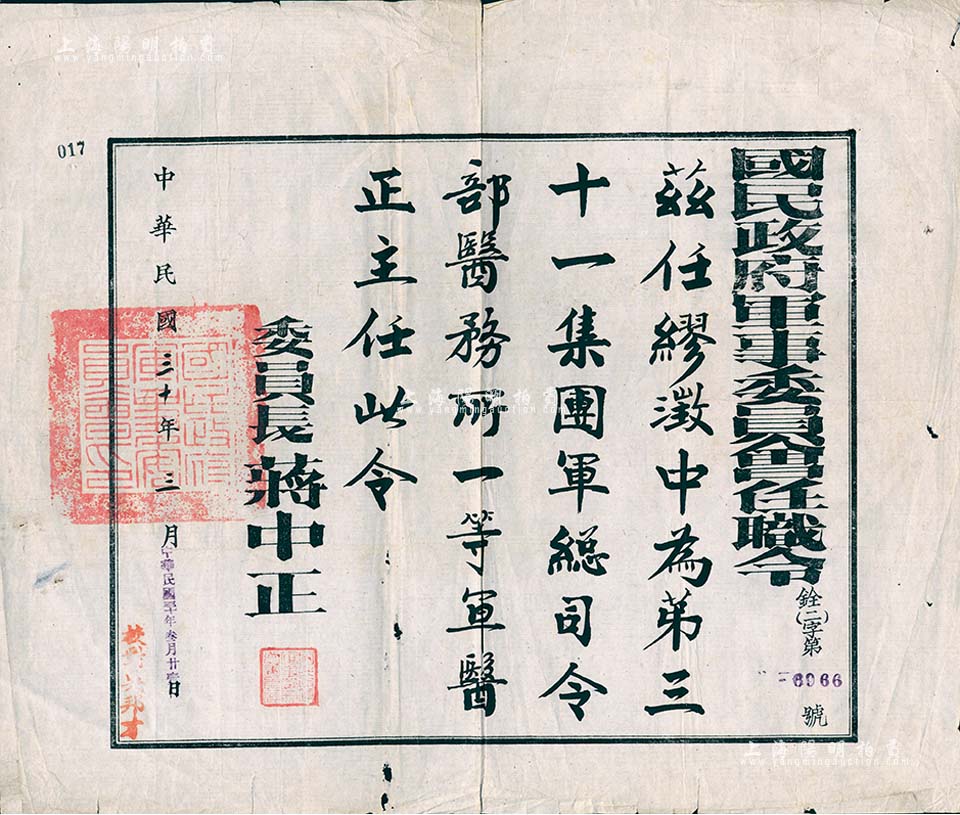 上海陽明拍賣
www.yangmingauction.com
017
國民政府軍事委員會任職令
銓(二)字第
6966
號
茲任繆澂中為第三
十一集團軍總司令
部醫務所一等軍醫
正主任此令
委員長 蔣中正
中華民國三十年三月日
中華民國三十年叁月廿
上海陽明拍賣
www.yangmingauction.com
上海陽明拍賣
www.yangmingauction.com